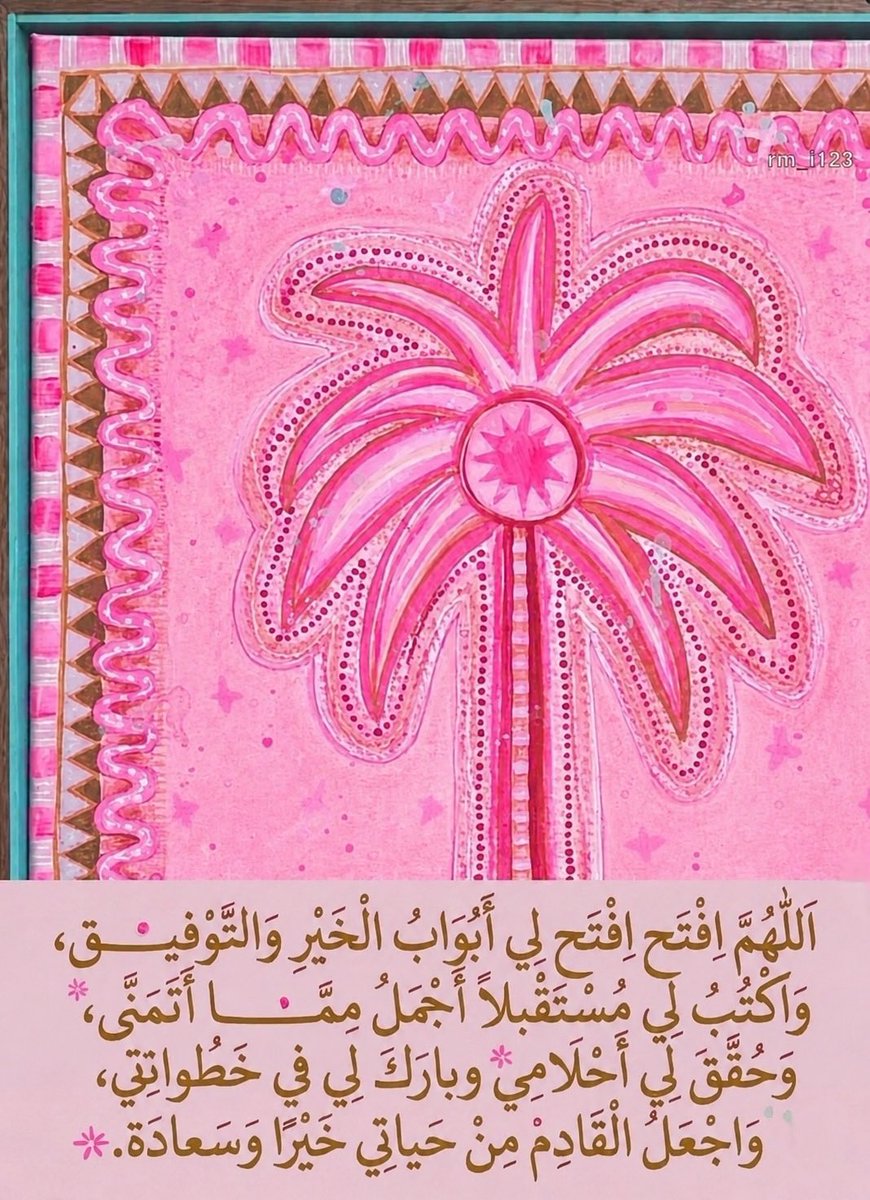 rm_i123
اَللّٰهُمَّ اِفْتَح اِفْتَح لِي أَبُوَابُ الْخَيْرِ وَالتَّوْفيـــق،
وَاكْتُبُ لِي مُسْتَقْبلاً أَجْمَلُ مِمَّـــــا أَتَمَنَّى،
وَحُقَّقَ لِي أَحْلَامِي وبارَكَ لِي في خَطُواتِتي،
وَاجْعَلُ الْقَادِمْ مِنْ حَياتِي خَيْرًا وَسَعادَة.